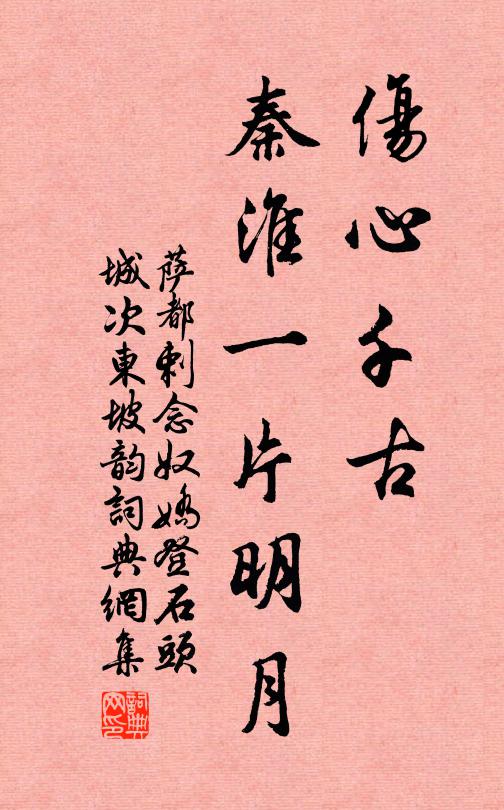 傷心千古
秦淮一片明月
薩都剌念奴嬌登石頭
城次東坡韵詞典網集
詞典
网印